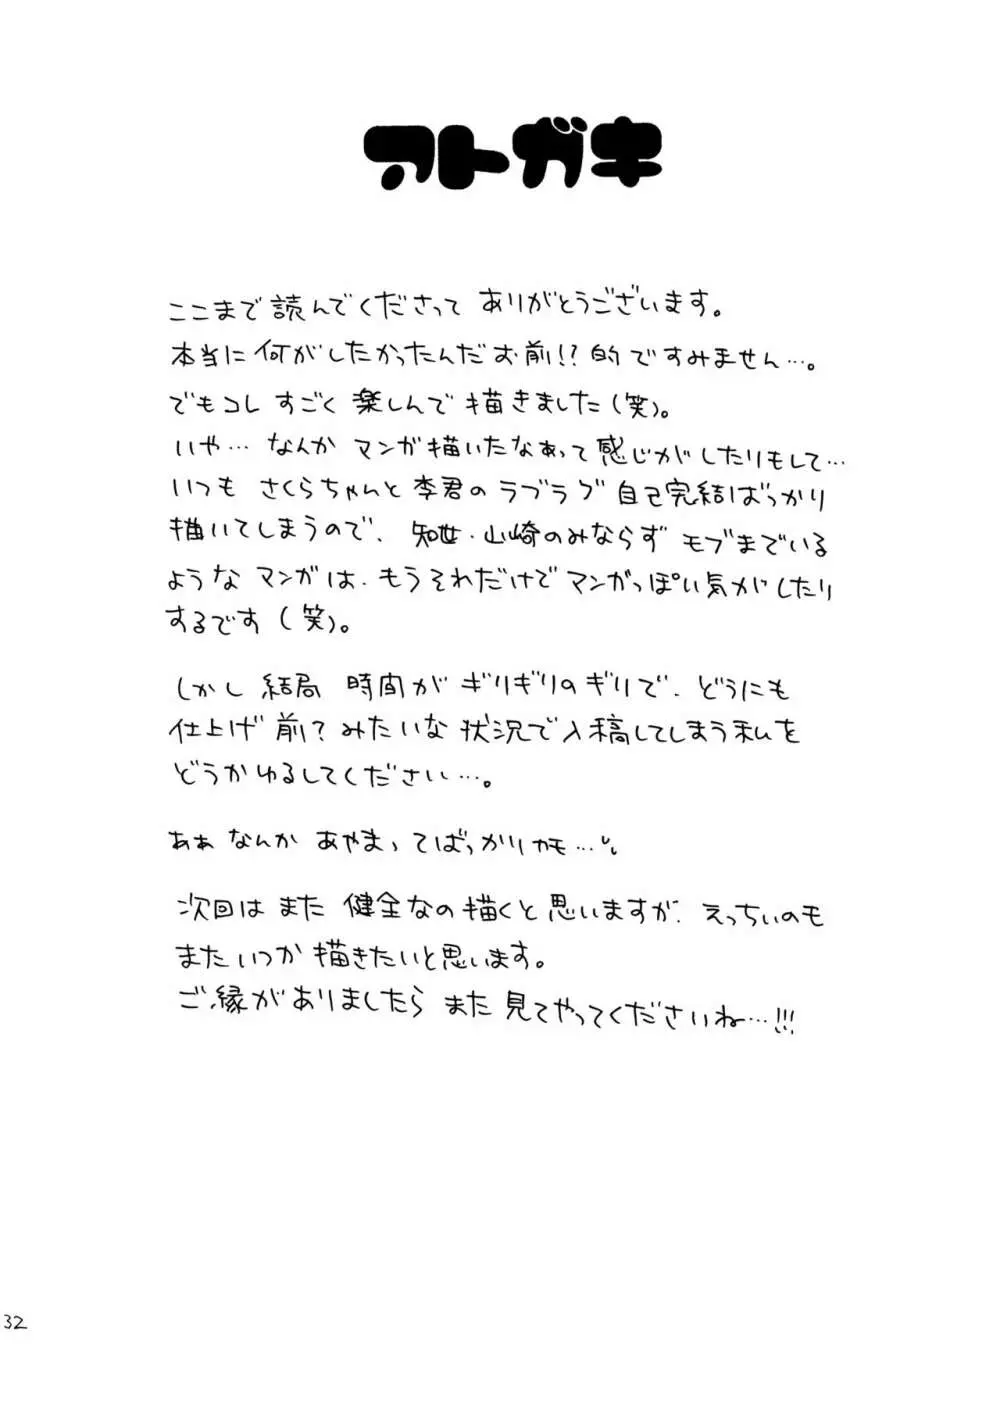 アトガキ
ここまで読んでくださって ありがとうございます。
本当に何がしたかったんだお前!?的ですみません…。
でもコレ すごく楽しんで描きました(笑)。
いや… なんか マンガ描いたなぁって感じがしたりもして…
いつも さくらちゃんと李君のラブラブ自己完結ばっかり
描いてしまうので、知世・山崎のみならず モブまでいる
ようなマンガは、もうそれだけでマンガっぽい気がしたり
するです(笑)。
しかし 結局 時間が ギリギリのギリで、どうにも
仕上げ前?みたいな状況で入稿してしまう私を
どうかゆるしてください…。
あぁ なんか あやまってばっかりカモ…
次回は また 健全なの描くと思いますが、えっちぃのも
またいつか描きたいと思います。
ご縁がありましたら また 見てやってくださいね…!!!
32